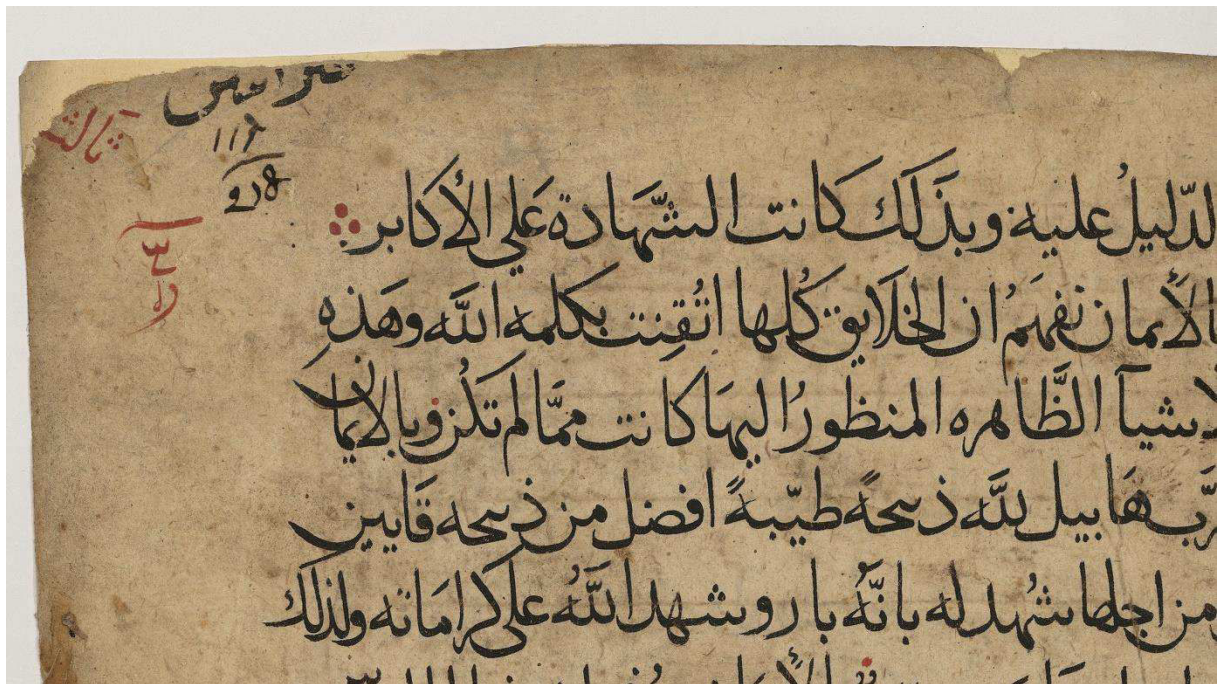 ثالث
الدّليلُ عليه وبذَلَك كانت الشّهادة عَلي الأكابر
بالأيمان نفهَمُ ان الخلايق كُلها اتُقِنت بكلمه اللَّه وهَذهِ
الاشيآ الظَّاهره المنظورُ اليهَا كانت ممّا لم تكن وبالايمان
قرَّب هَابيل للَّه ذبيحهً طيّبهً افضل من ذبيحه قَايين
ومن اجلها شُهد له بانَّهُ بار وشهد اللَّهُ على كراماته ولذلك